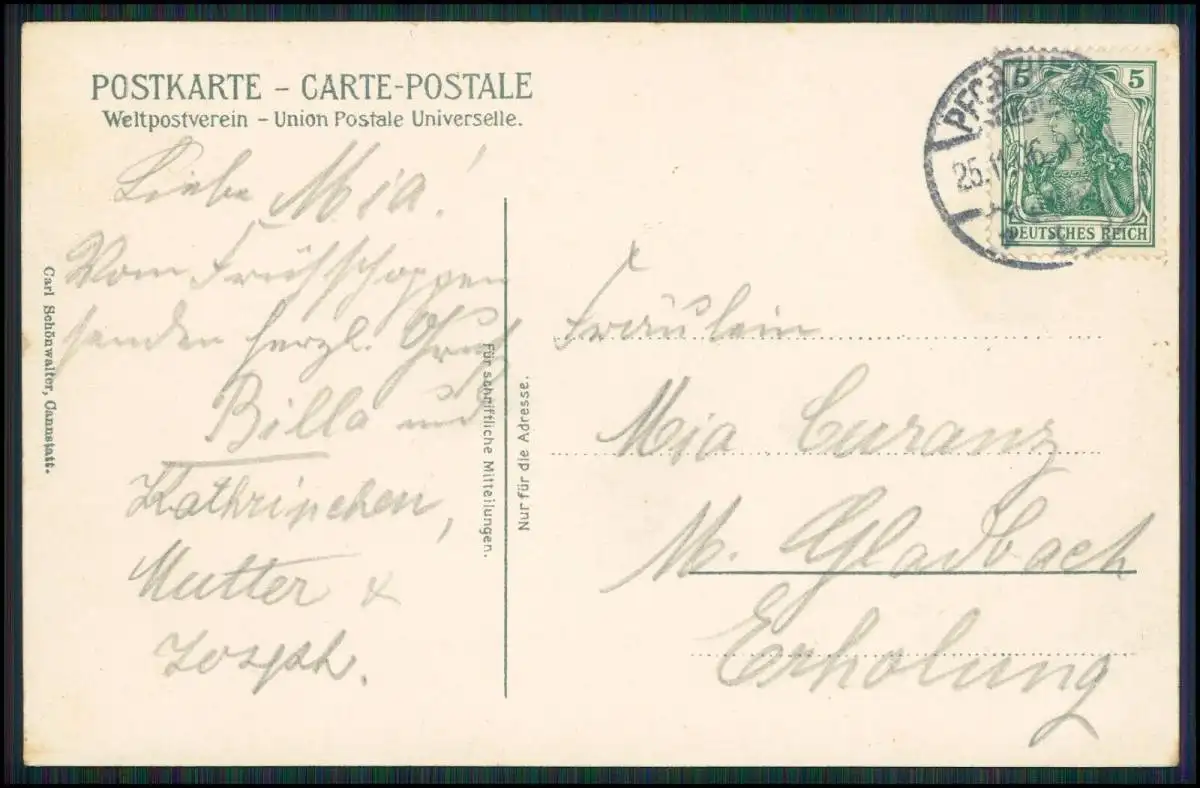 POSTKARTE – CARTE-POSTALE
Weltpostverein – Union Postale Universelle.
Liebe Mia!
Vom Frühschoppen
senden herzl. Gruß
Billa und
Kathrinchen,
Mutter &
Joseph.
Carl Schönwalter, Cannstatt.
Für schriftliche Mitteilungen.
Nur für die Adresse.
5 5
DEUTSCHES REICH
25.11.
Fräulein
Mia Curanz
M. Gladbach
Erholung